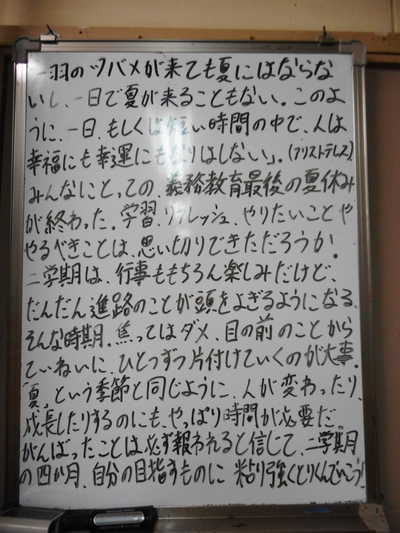 一羽のツバメが来ても夏にはならな
いし、一日で夏が来ることもない。このよ
うに、一日、もしくは短い時間の中で、人は
幸福にも幸運にもなりはしない」。(アリストテレス)
みんなにとっての、義務教育最後の夏休み
が終わった。学習、リフレッシュ、やりたいことや
やるべきことは、思い切りできただろうか。
二学期は、行事ももちろん楽しみだけど、
だんだん進路のことが頭をよぎるようになる。
そんな時期。焦ってはダメ、目の前のことから
ていねいに、ひとつずつ片付けていくのが大事。
「夏」という季節と同じように、人が変わったり、
成長したりするのにも、やっぱり時間が必要だ。
がんばったことは必ず報われると信じて、二学期
の四か月、自分の目指すものに粘り強くとりくんでいこう!